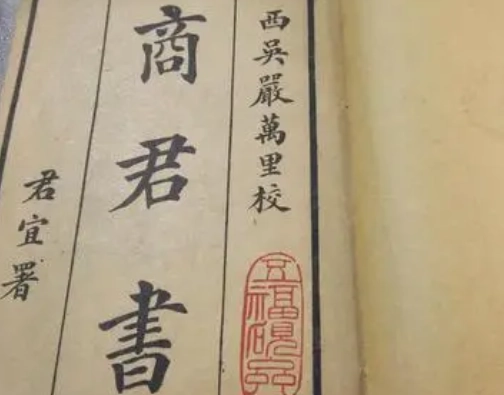 西吳嚴萬里校
商君書
君宜署
五福硯